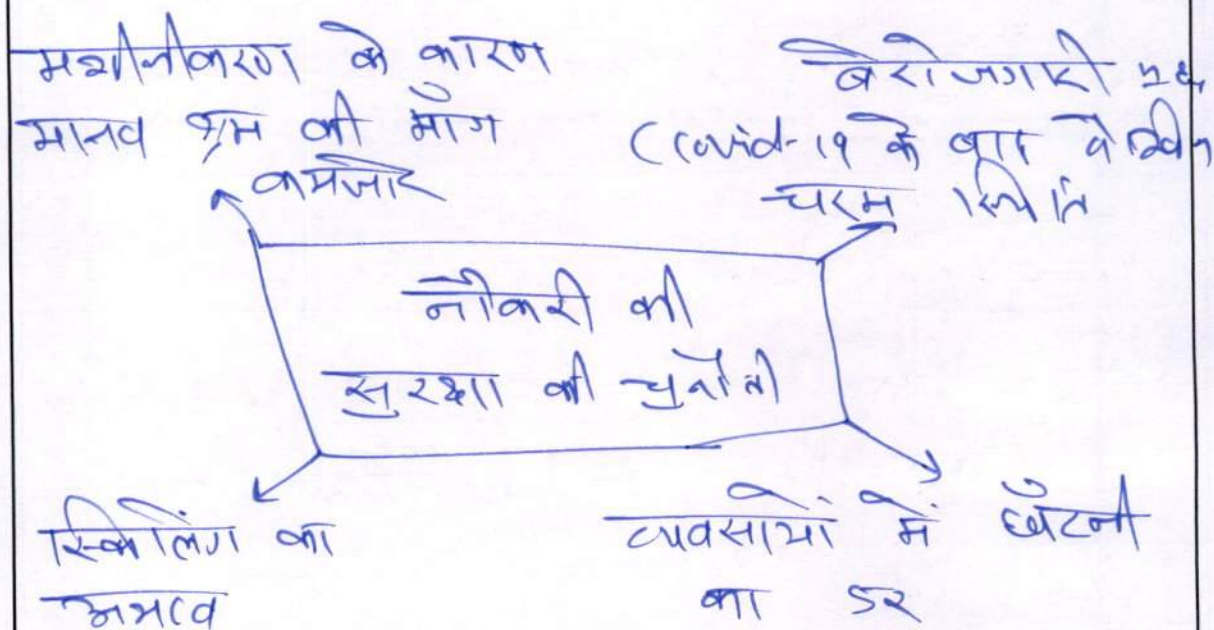 मशीनीकरण के कारण
मानव श्रम की माँग
कमजोर
बेरोजगारी
(Covid-19 के बाद वैश्विक
चरम स्थिति
नौकरी की
सुरक्षा की चुनौती
स्किलिंग का
अभाव
व्यवसायों में छँटनी
का डर